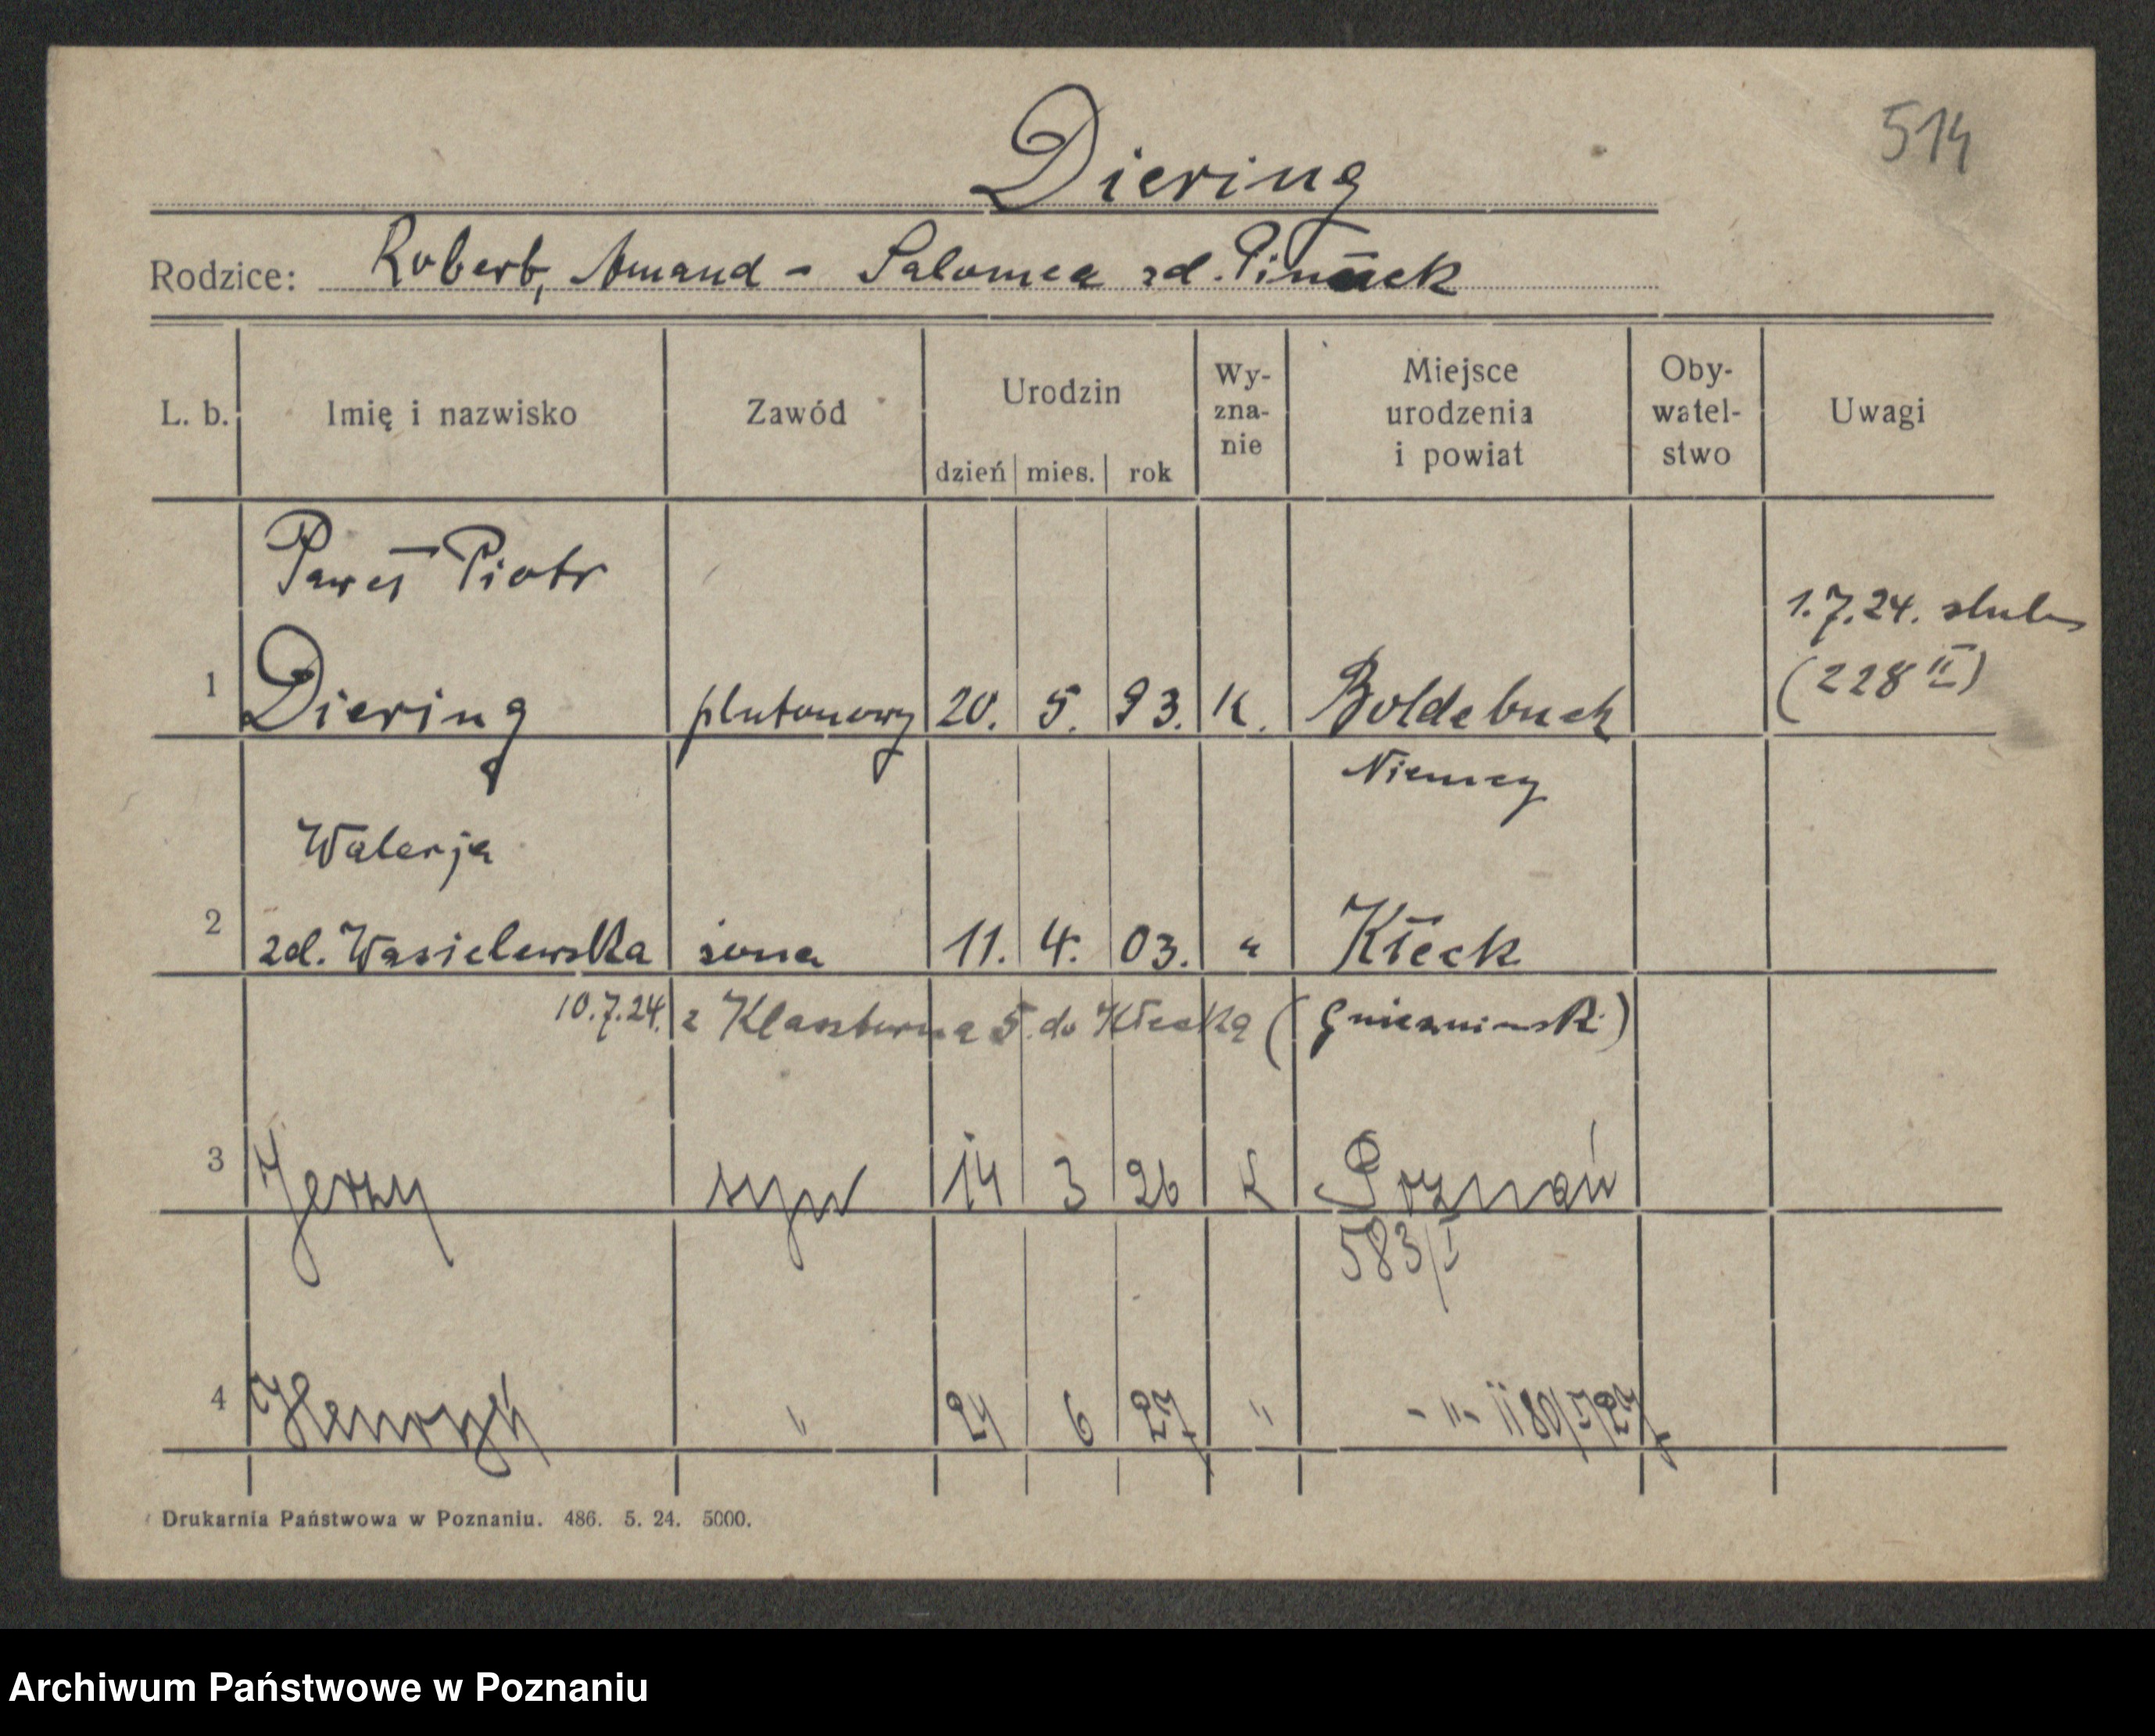 514
Diering
Rodzice: Robert, Amand - Salomea zd.
L. b. Imię i nazwisko Zawód Urodzin dzień mies. rok Wy-zna-nie Miejsce urodzenia i powiat Oby-watel-stwo Uwagi
Paweł Piotr
1.7.24. ślub
1 Diering plutonowy 20. 5. 93. K. Boldebuck (228 II)
Niemcy
Walerja
2 zd. Wasielewska żona 11. 4. 03. " Kłeck
10.7.24. z Klasztorna 5. do Kłecka (Gnieźnieński)
3 Jerzy syn 14 3 26 K Poznań
583/I
4 Henryk " 24 6 27 " - " - 1180/I/27
Drukarnia Państwowa w Poznaniu. 486. 5. 24. 5000.
Archiwum Państwowe w Poznaniu